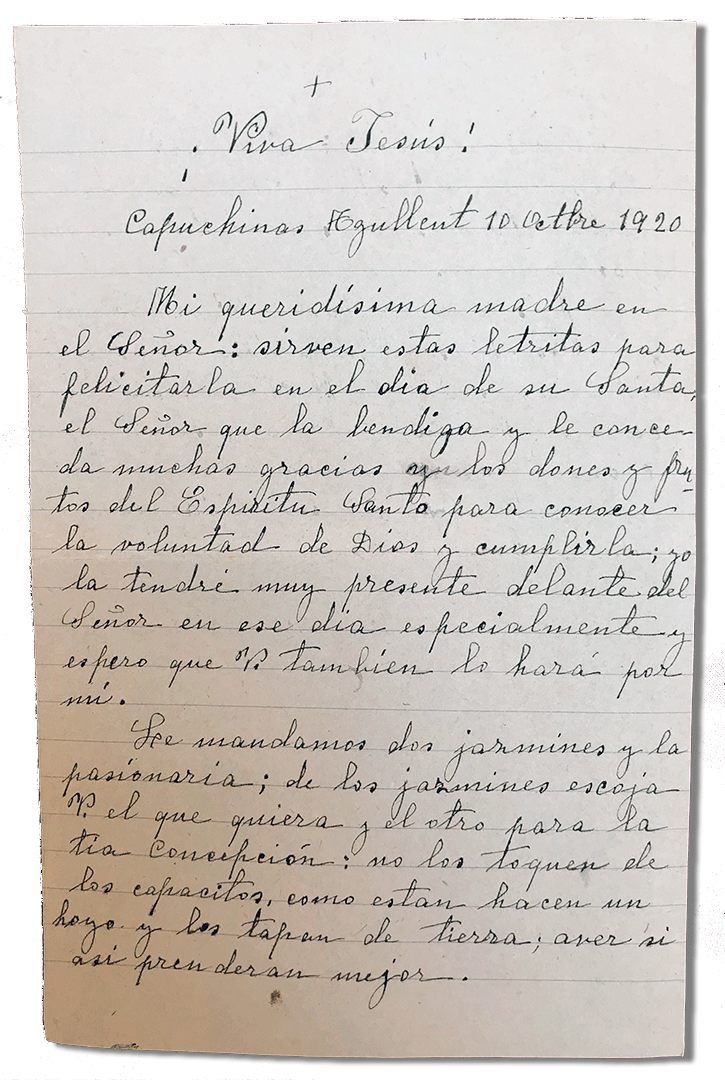 +
¡Viva Jesús!
Capuchinas Agullent 10 Octbre 1920
Mi queridísima madre en
el Señor: sirven estas letritas para
felicitarla en el dia de su Santa,
el Señor que la bendiga y le conce-
da muchas gracias y los dones y fru-
tos del Espiritu Santo para conocer
la voluntad de Dios y cumplirla; yo
la tendré muy presente delante del
Señor en ese dia especialmente y
espero que V. tambien lo hará por
mí.
Le mandamos dos jazmines y la
pasionaria; de los jazmines escoja
V. el que quiera y el otro para la
tia Concepción: no los toquen de
los capacitos, como estan hacen un
hoyo y los tapan de tierra; aver si
asi prenderan mejor.